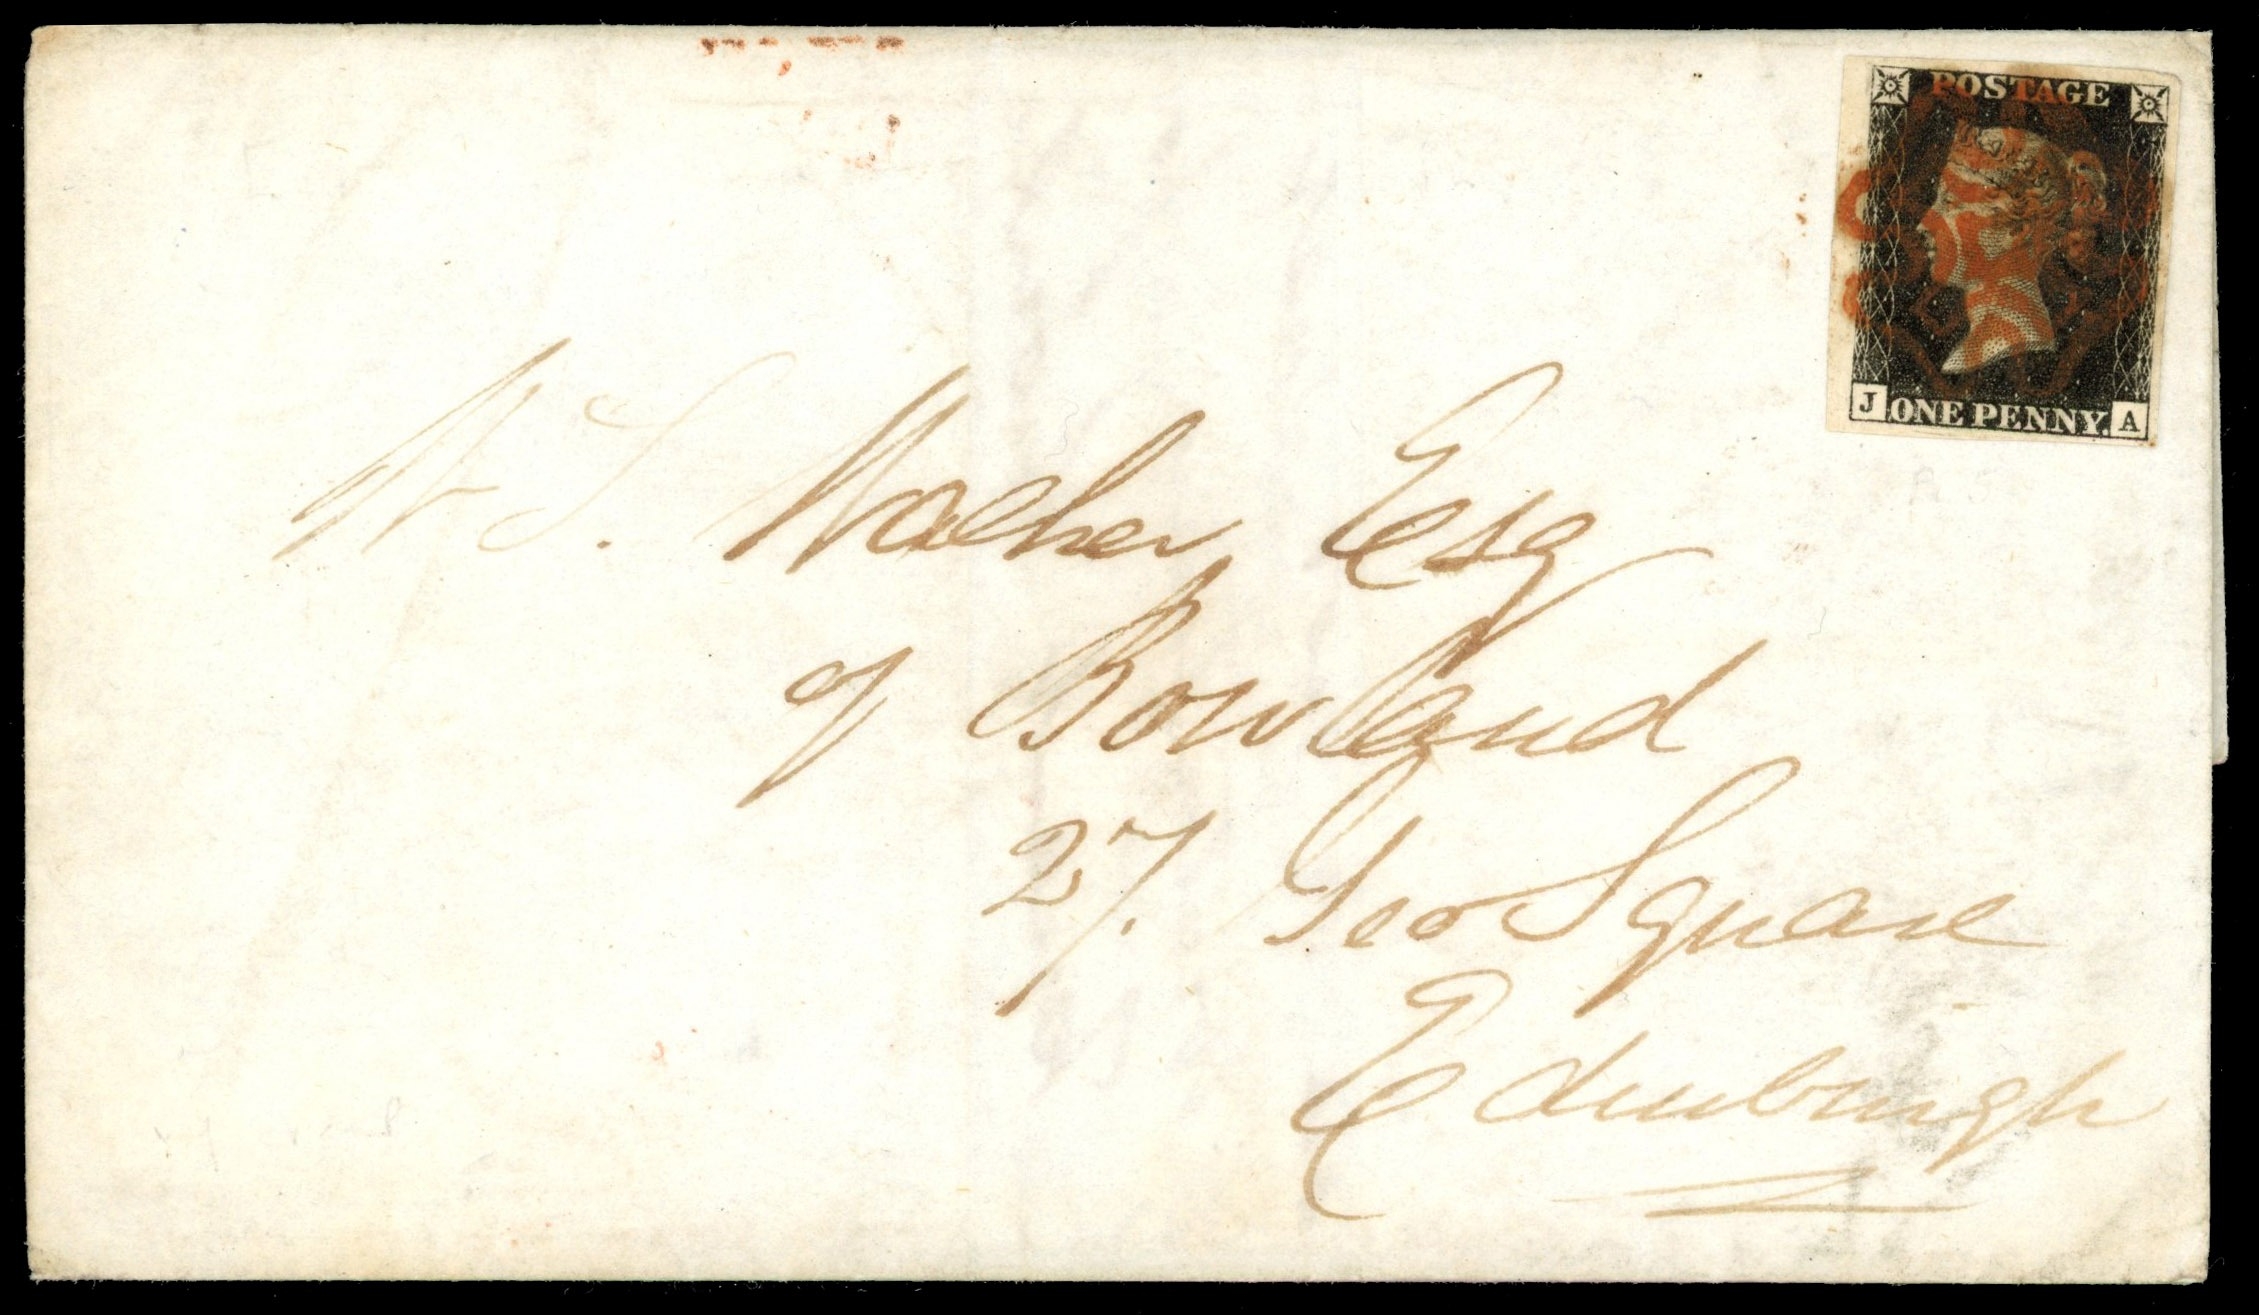 POSTAGE
J ONE PENNY. A
W S. Walker Esq
of Bowland
27. Geo Square
Edinburgh